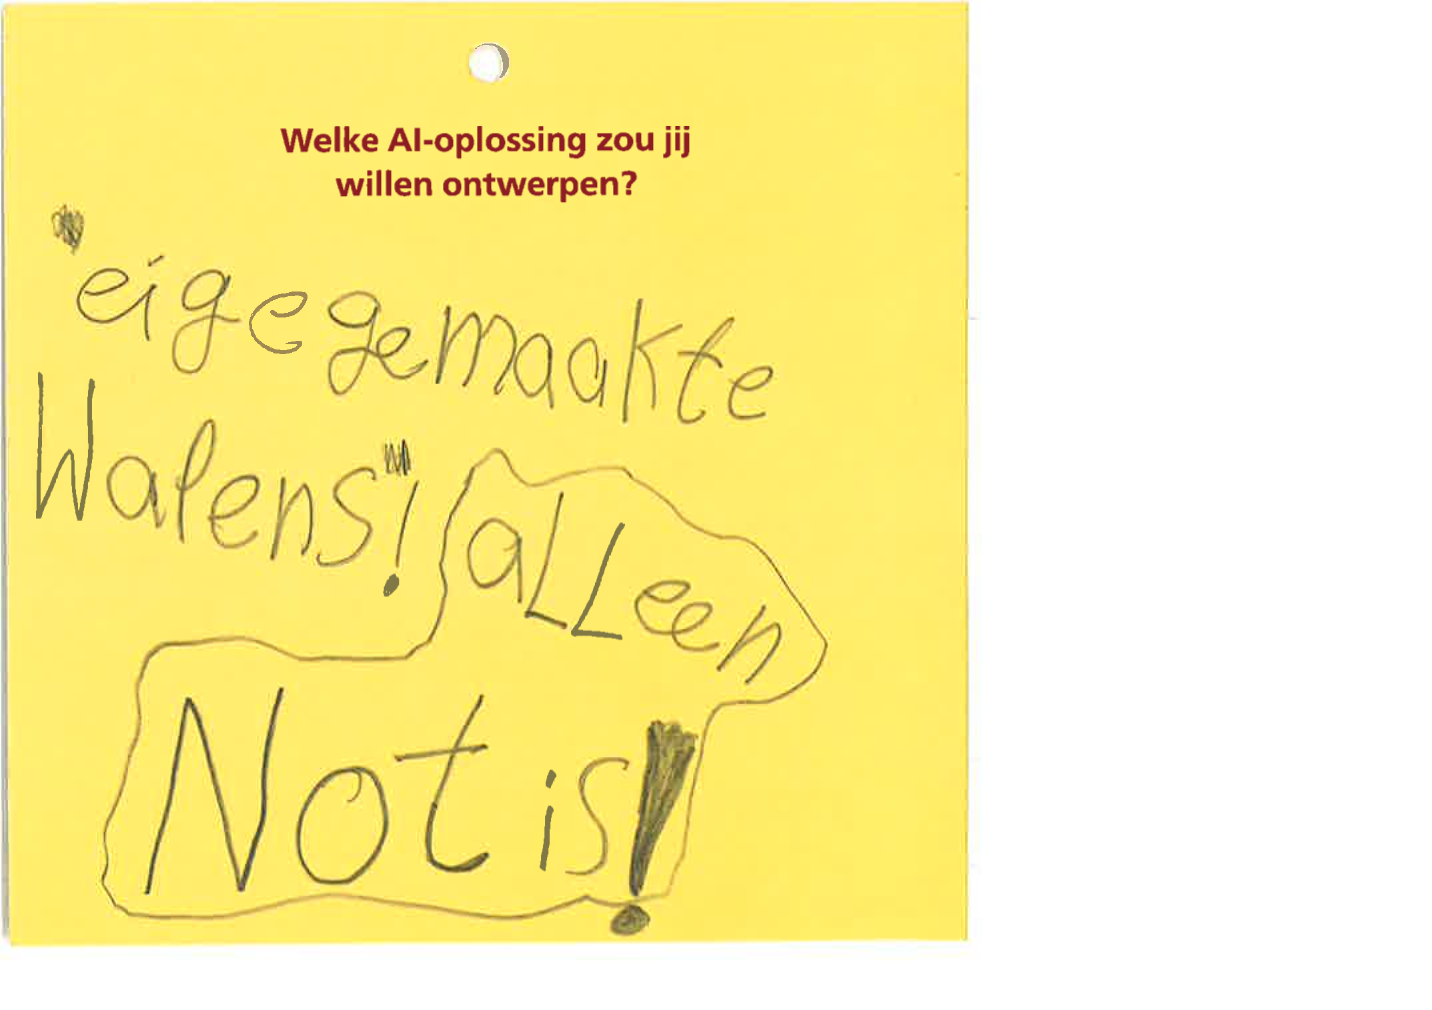 Welke AI-oplossing zou jij
willen ontwerpen?
"eige gemaakte
Wapens"! alleen
Not is!